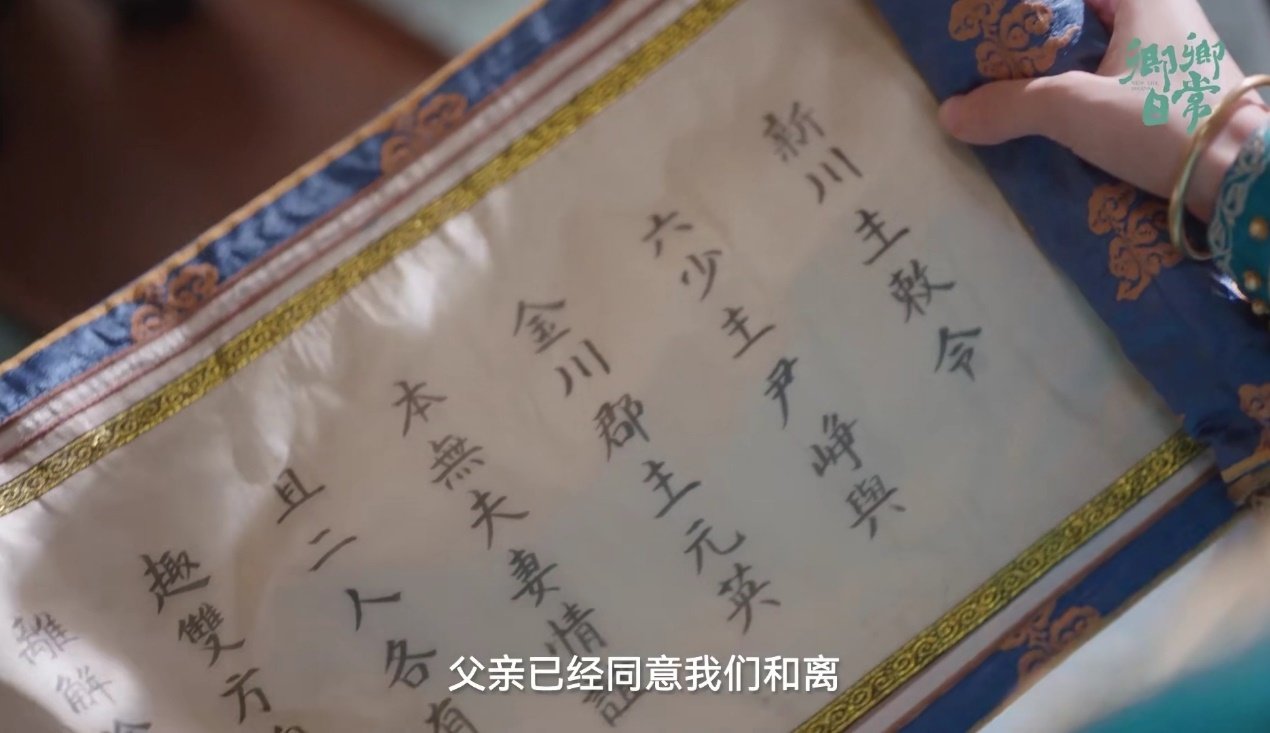 新川主敕令
六少主尹崢與
金川郡主元英
本無夫妻情
且二人各有
趣雙方
離解
父亲已经同意我们和离
卿卿日常